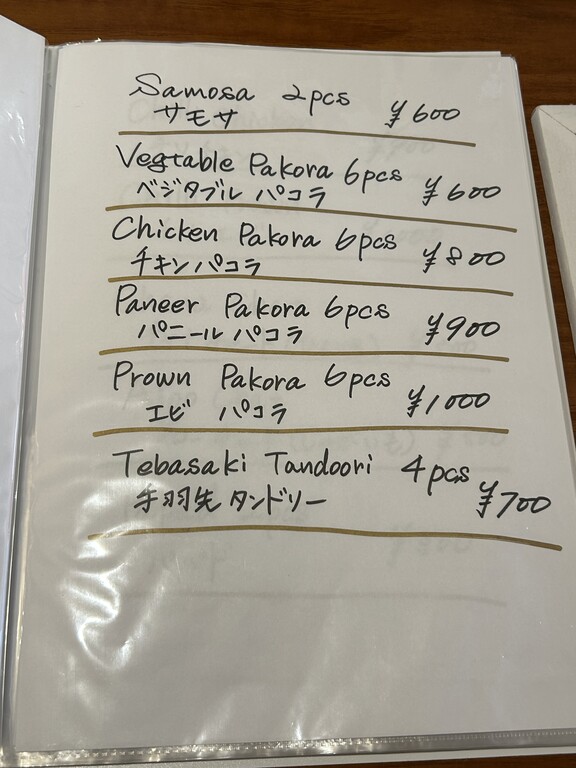 Samosa 2pcs ¥600
サモサ
Vegtable Pakora 6pcs ¥600
ベジタブル パコラ
Chicken Pakora 6pcs ¥800
チキンパコラ
Paneer Pakora 6pcs ¥900
パニール パコラ
Prown Pakora 6pcs ¥1000
エビ パコラ
Tebasaki Tandoori 4pcs ¥700
手羽先 タンドリー